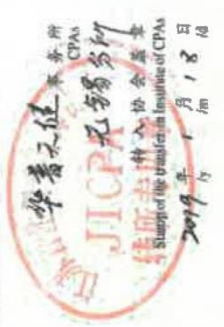 华普天健 事务所
CPAs
无锡分所
JICPA
转入协会盖章
Stamp of the transfer-in Institute of CPAs
2019 年 1 月 18 日
/y /m /d